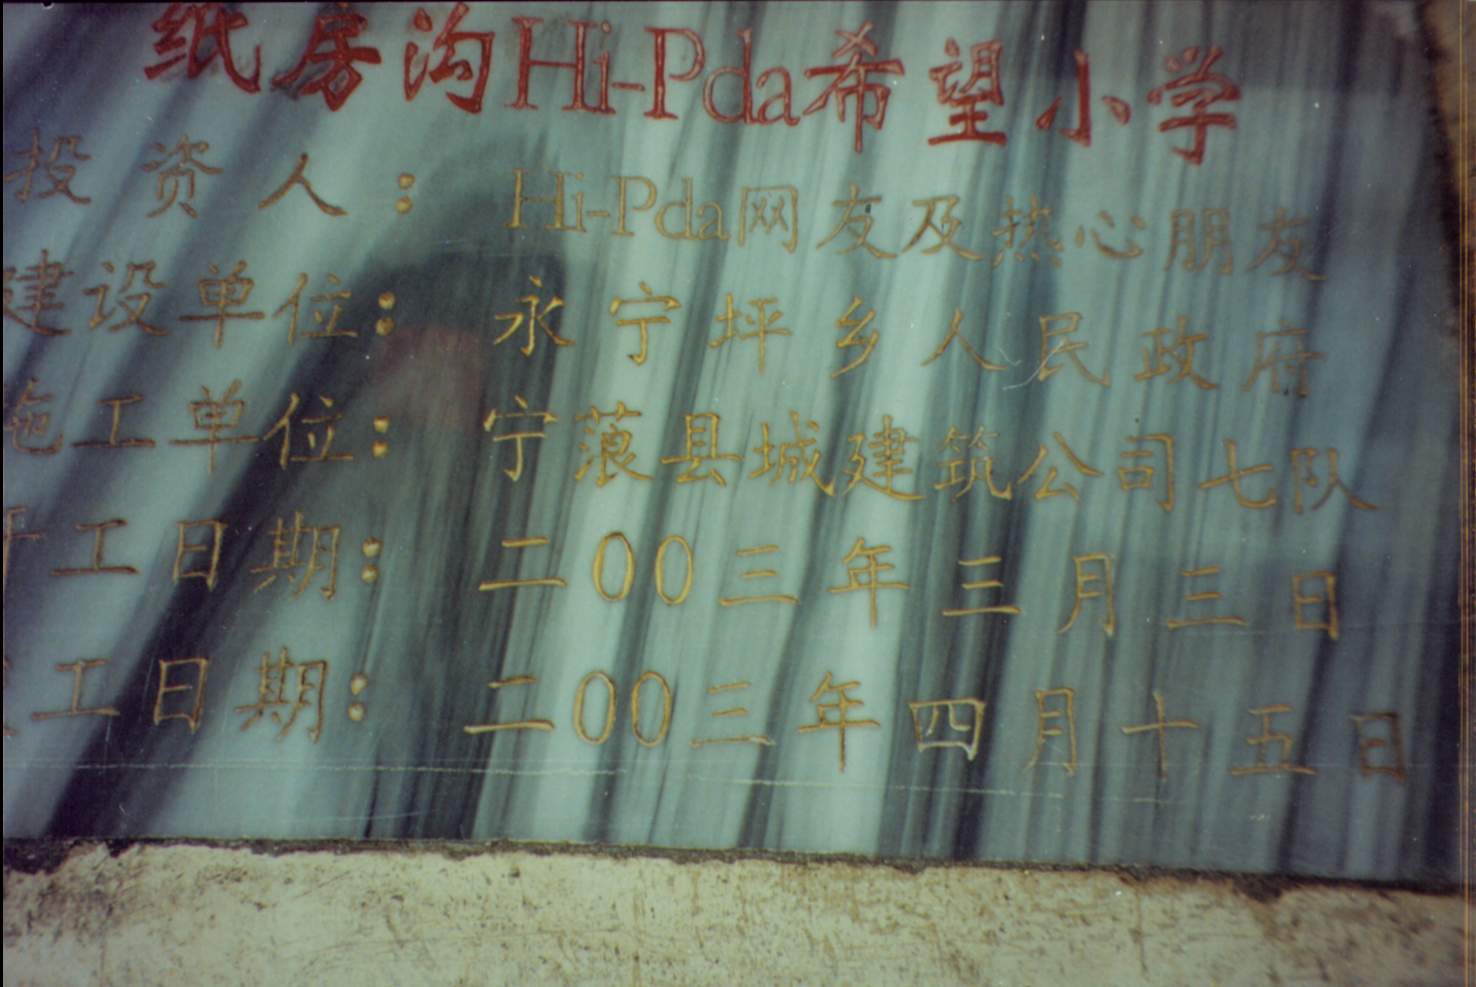 纸房沟Hi-Pda希望小学
投资人：Hi-Pda网友及热心朋友
建设单位：永宁坪乡人民政府
施工单位：宁蒗县城建筑公司七队
工日期：二00三年三月三日
工日期：二00三年四月十五日